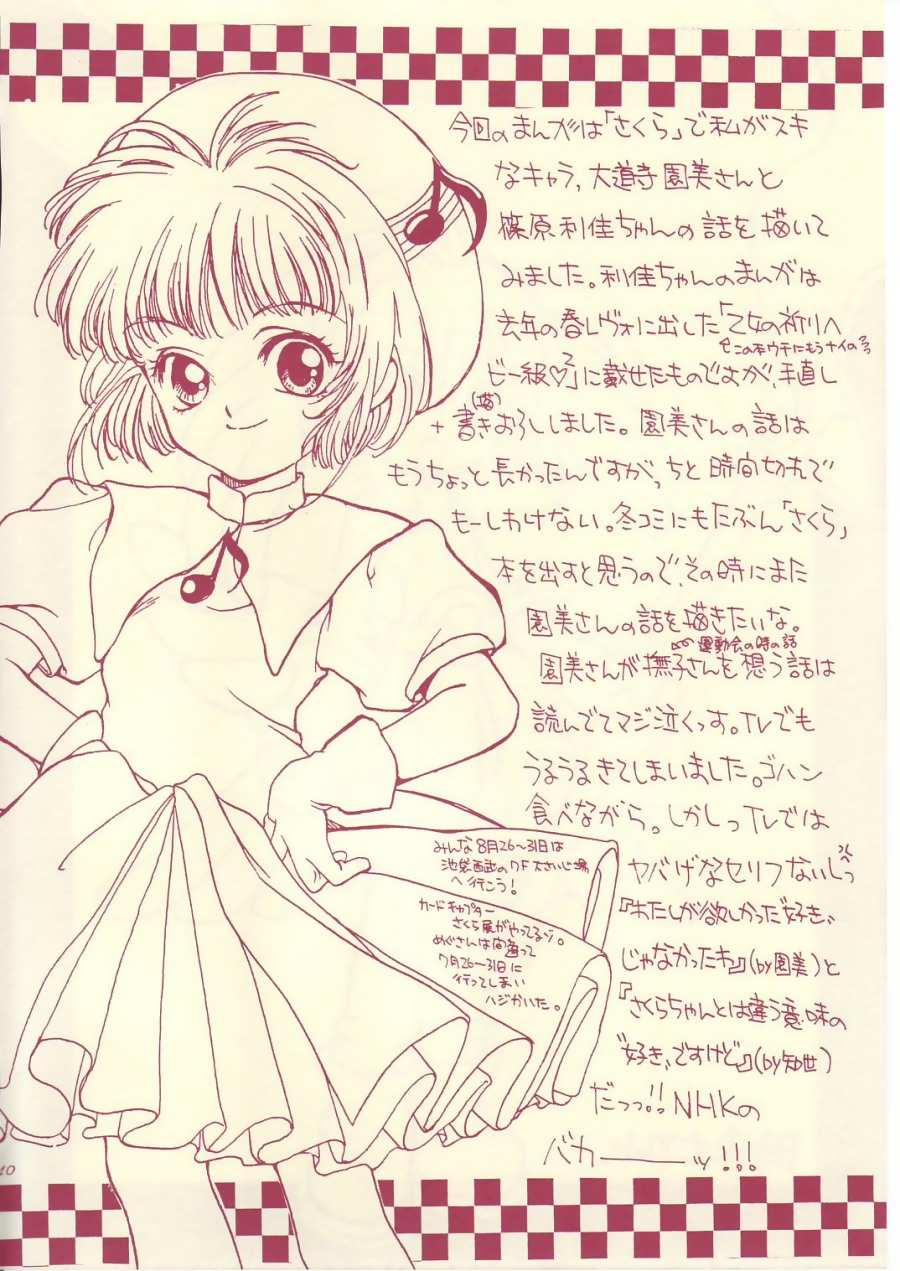 今回のまんがは「さくら」で私がスキ
なキャラ、大道寺園美さんと
篠原利佳ちゃんの話を描いて
みました。利佳ちゃんのまんがは
去年の春レヴォに出した「乙女の祈りへ
この本ウチにもうナイの
ビー級♡」に載せたものですが、手直し
+書き(描)おろししました。園美さんの話は
もうちょっと長かったんですが、ちと時間切れで
もーしわけない。冬コミにもたぶん「さくら」
本を出すと思うので、その時にまた
園美さんの話を描きたいな。
運動会の時の話
園美さんが撫子さんを想う話は
読んでてマジ泣くっす。TVでも
うるうるきてしまいました。ゴハン
食べながら。しかしっTVでは
ヤバげなセリフないしっ
『わたしが欲しかった〝好き〟
じゃなかったわ』(by園美)と
『さくらちゃんとは違う意味の
〝好き〟ですけど』(by知世)
だっっ!!NHKの
バカ――ッ!!!
みんな8月26〜31日は
池袋西武の7F大さいじ場
へ行こう!
カードキャプター
さくら展がやってるゾ。
めぐさんは間違って
7月26〜31日に
行ってしまい
ハジかいた。
40